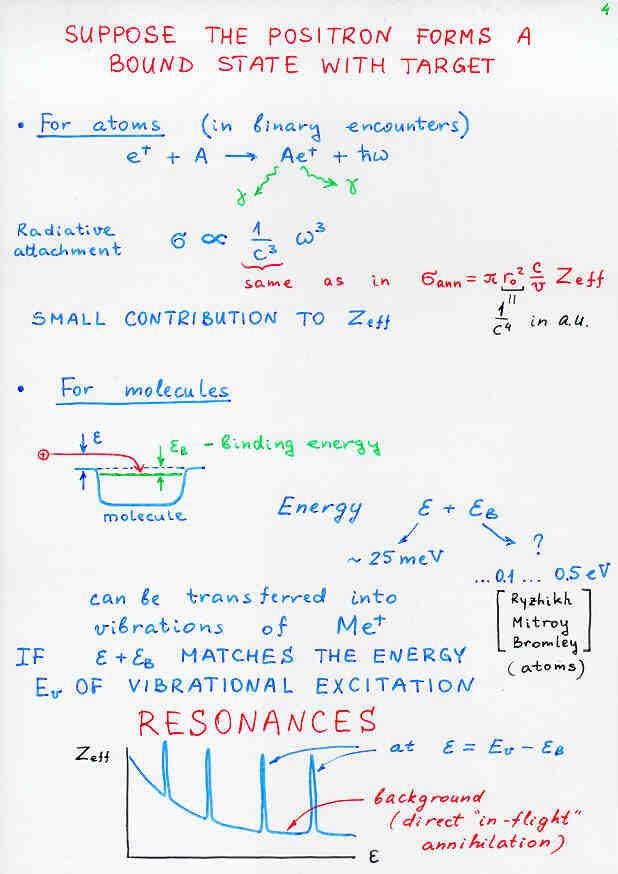 4
SUPPOSE THE POSITRON FORMS A
BOUND STATE WITH TARGET
• For atoms (in binary encounters)
e⁺ + A → Ae⁺ + ħω
γ γ
Radiative
attachment
σ ∝ 1/c³ ω³
same as in σann = π r₀² c/v Zeff
1/c⁴ in a.u.
SMALL CONTRIBUTION TO Zeff
• For molecules
⊕ ε εB – binding energy
molecule
Energy ε + εB
~ 25 meV ?
...0.1 ... 0.5 eV
can be transferred into
vibrations of Me⁺
[Ryzhikh
Mitroy
Bromley]
(atoms)
IF ε + εB MATCHES THE ENERGY
Eν OF VIBRATIONAL EXCITATION
RESONANCES
Zeff
at ε = Eν – εB
background
(direct "in-flight"
annihilation)
ε